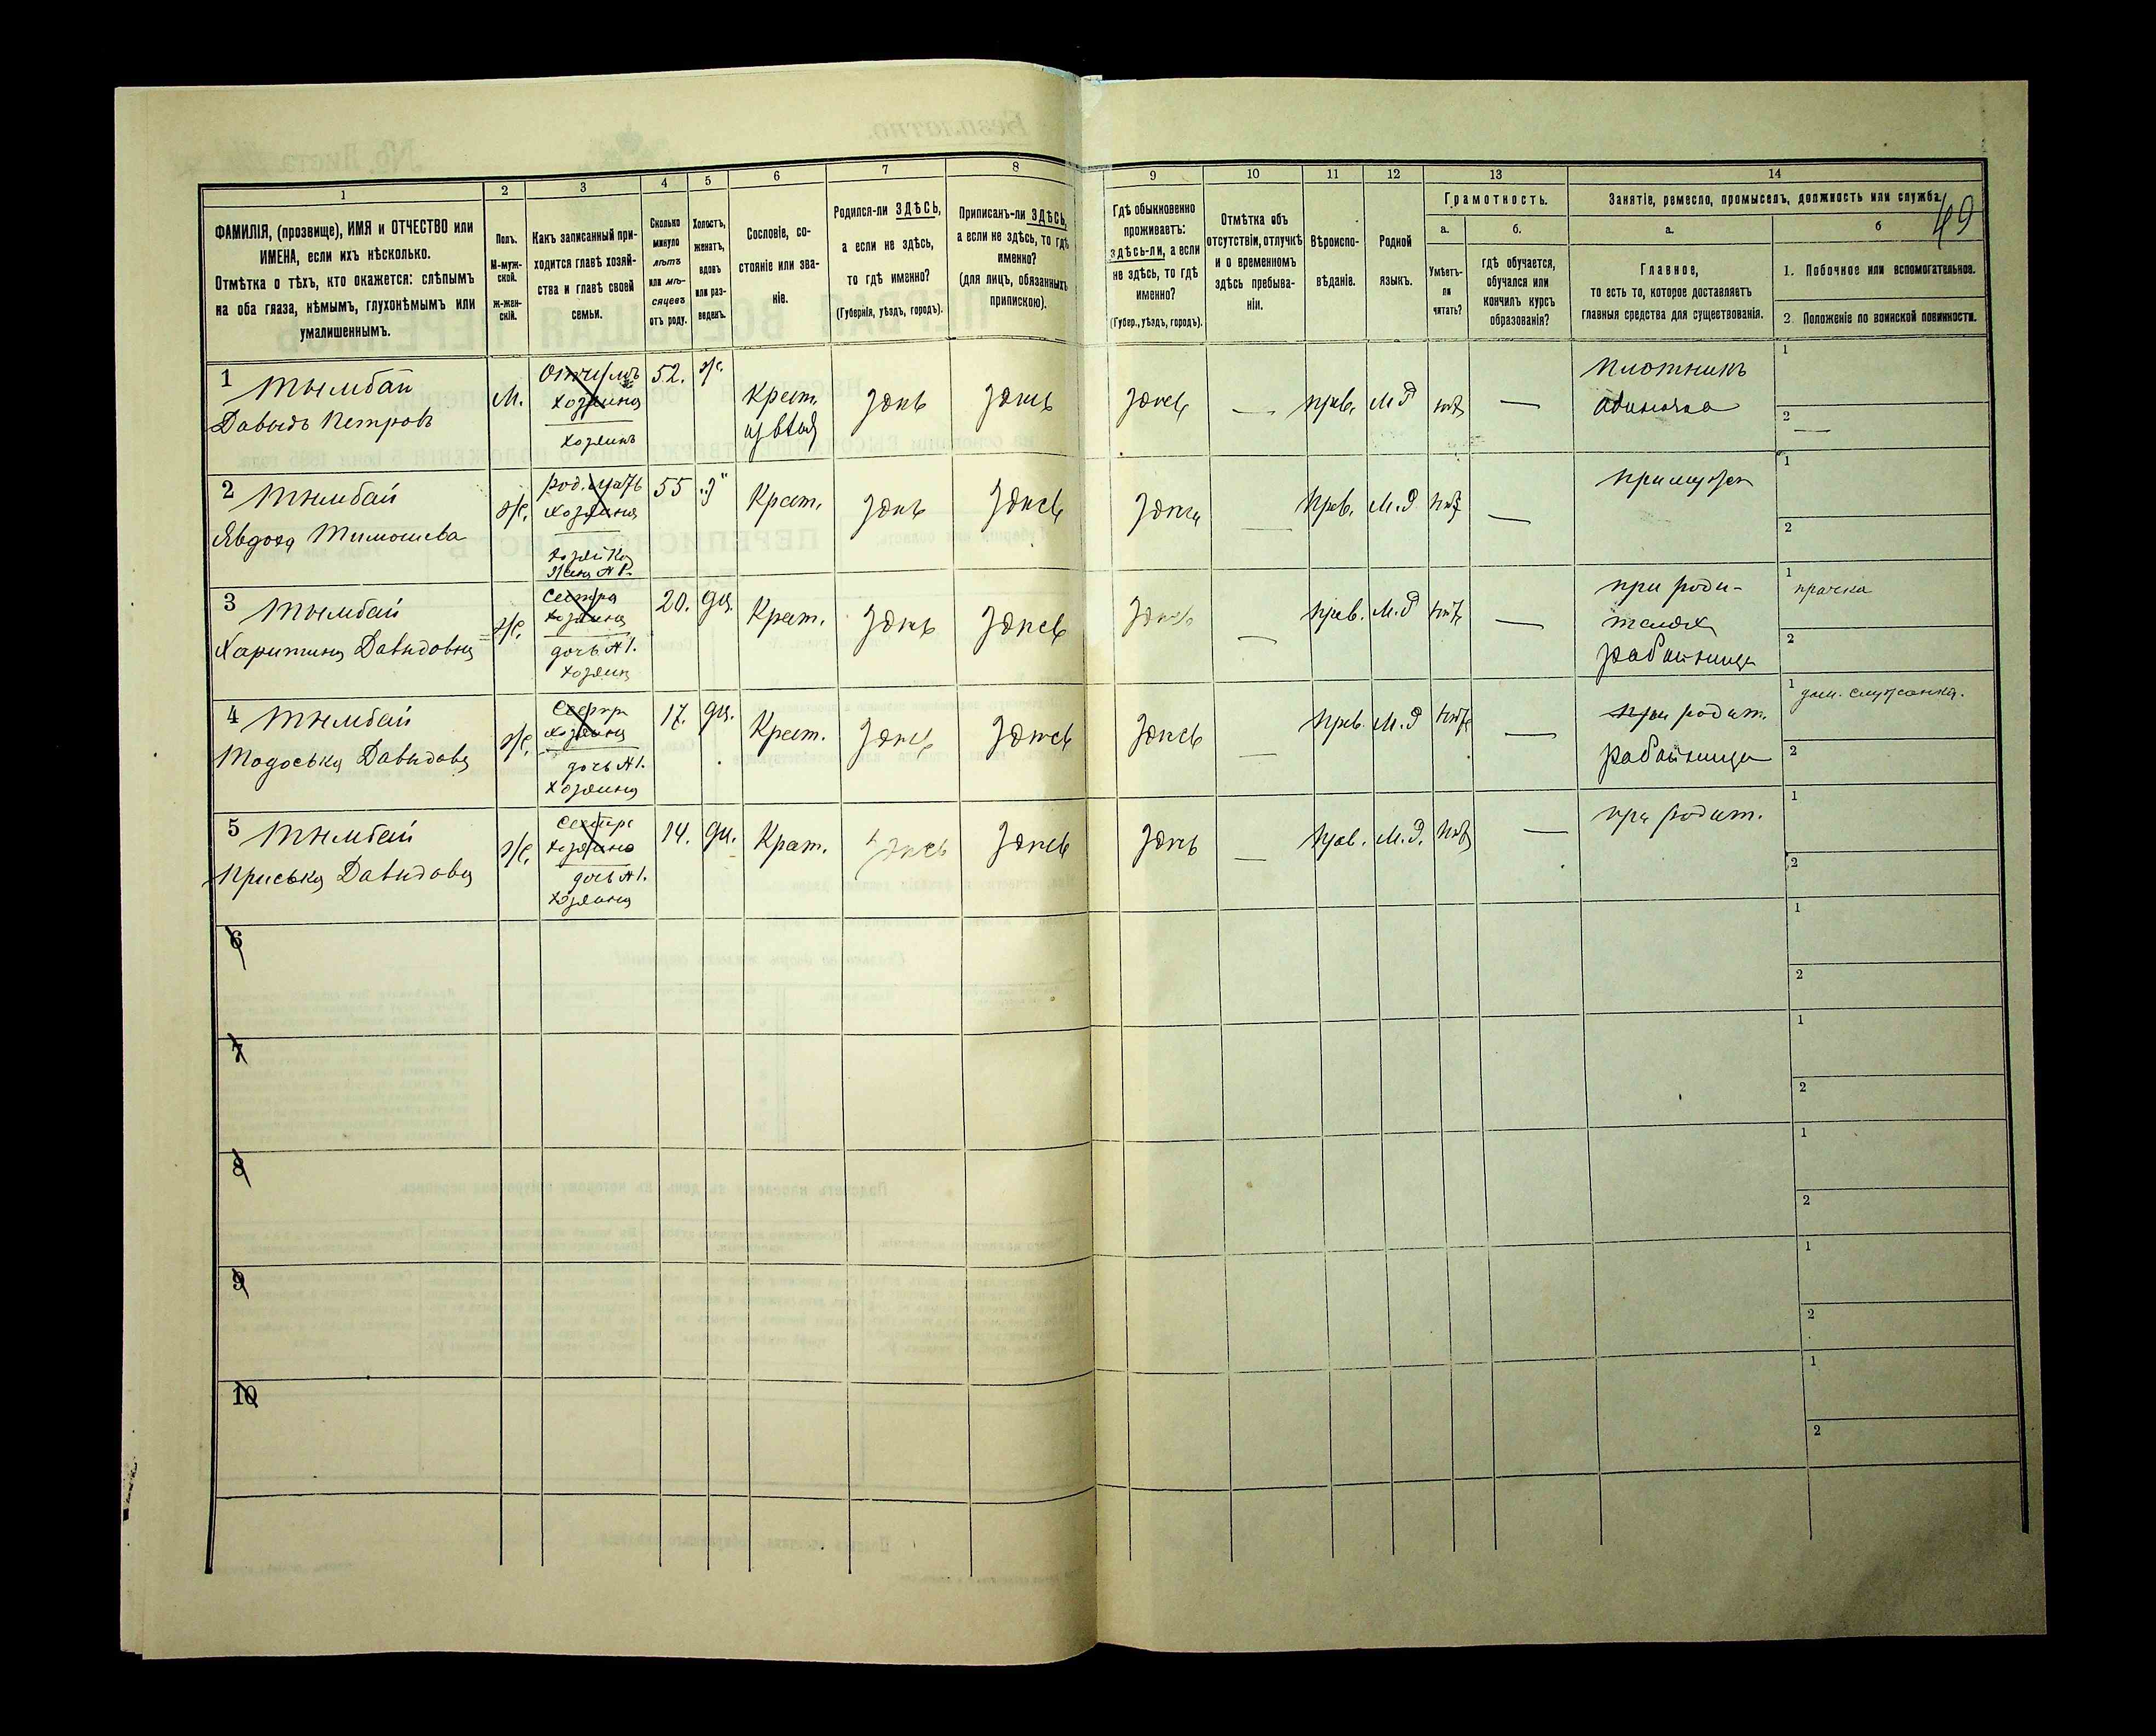 49
1 2 3 4 5 6 7 8 9 10 11 12 13 14
ФАМИЛІЯ, (прозвище), ИМЯ и ОТЧЕСТВО или
ИМЕНА, если ихъ нѣсколько.
Отмѣтка о тѣхъ, кто окажется: слѣпымъ
на оба глаза, нѣмымъ, глухонѣмымъ или
умалишеннымъ.
Полъ.
М-муж-
ской.
ж-жен-
скій.
Какъ записанный при-
ходится главѣ хозяй-
ства и главѣ своей
семьи.
Сколько
минуло
лѣтъ
или мѣ-
сяцевъ
отъ роду.
Холостъ,
женатъ,
вдовъ
или раз-
веденъ.
Сословіе, со-
стояніе или зва-
ніе.
Родился-ли ЗДѢСЬ,
а если не здѣсь,
то гдѣ именно?
(Губернія, уѣздъ, городъ).
Приписанъ-ли ЗДѢСЬ,
а если не здѣсь, то гдѣ
именно?
(для лицъ, обязанныхъ
припискою).
Гдѣ обыкновенно
проживаетъ:
здѣсь-ли, а если
не здѣсь, то гдѣ
именно?
(Губер., уѣздъ, городъ).
Отмѣтка объ
отсутствіи, отлучкѣ
и о временномъ
здѣсь пребыва-
ніи.
Вѣроиспо-
вѣданіе.
Родной
языкъ.
Грамотность.
а.
Умѣетъ-
ли
читать?
б.
гдѣ обучается,
обучался или
кончилъ курсъ
образованія?
Занятіе, ремесло, промыселъ, должность или служба.
а.
Главное,
то есть то, которое доставляетъ
главныя средства для существованія.
б
1. Побочное или вспомогательное.
2. Положеніе по воинской повинности.
1 Тымбай
Давыдъ Петровъ
М.
хозяина
хозяинъ
52.
ж.
Крест.
здѣсь
здѣсь
здѣсь
—
прав.
М.д
нѣтъ
—
плотникъ
одиночка
1
2
—
2 Тымбай
Явдоха Тимошева
ж.
род. мать
хозяина
хозяйка
жена № 1.
55
„з“
Крест.
здѣсь
здѣсь
здѣсь
—
прав.
М.д
нѣтъ
—
при мужѣ
1
2
3 Тымбай
Харитина Давыдовна
ж.
Сестра
хозяина
дочь № 1.
хозяина
20.
дѣ.
Крест.
здѣсь
здѣсь
здѣсь
—
прав.
М.д
нѣтъ
—
при роди-
теляхъ
работница
1 прачка
2
4 Тымбай
Тодоська Давыдова
ж.
Сестра
хозяина
дочь № 1.
хозяина
17.
дѣ.
Крест.
здѣсь
здѣсь
здѣсь
—
прав.
М.д
нѣтъ
—
при родит.
работница
1 дом. служанка.
2
5 Тымбай
Приська Давыдова
ж.
Сестра
хозяина
дочь № 1.
хозяина
14.
дѣ.
Крест.
здѣсь
здѣсь
здѣсь
—
прав.
М.д.
нѣтъ
—
при родит.
1
2
6
1
2
7
1
2
8
1
2
9
1
2
10
1
2